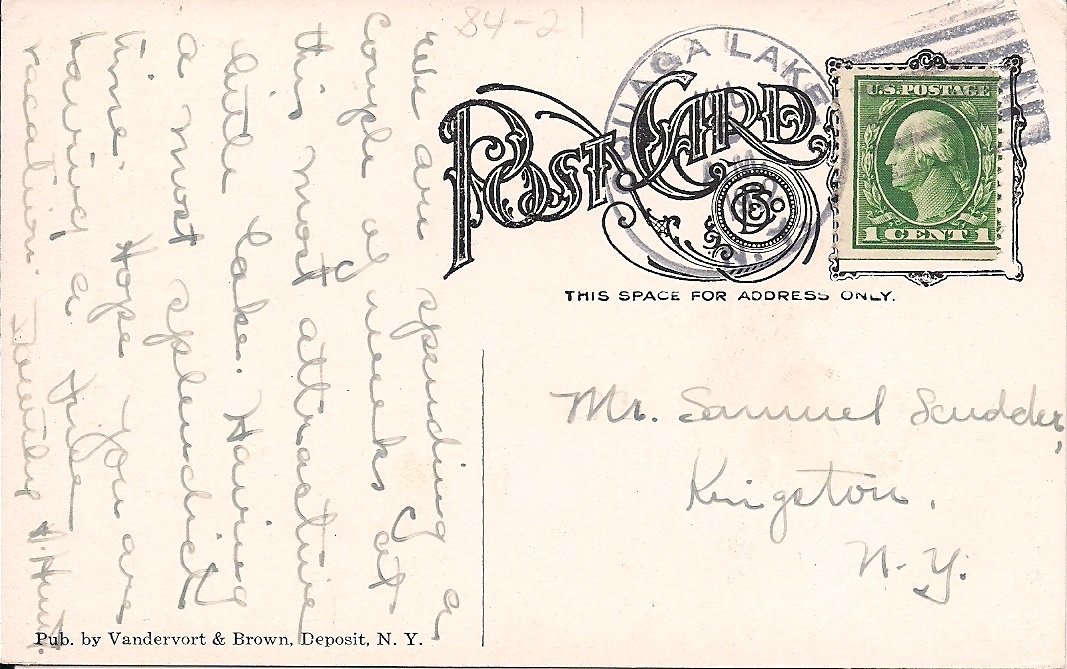 84-21
We are spending a
couple of weeks at
this most attractive
little lake. Having
a most splendid
time. Hope you are
having a fine
vacation.
POST CARD.
QUAGA LAKE
N.Y.
U.S. POSTAGE
1 CENT 1
THIS SPACE FOR ADDRESS ONLY.
Mr. Samuel Scudder,
Kingston,
N.Y.
Pub. by Vandervort & Brown, Deposit, N. Y.